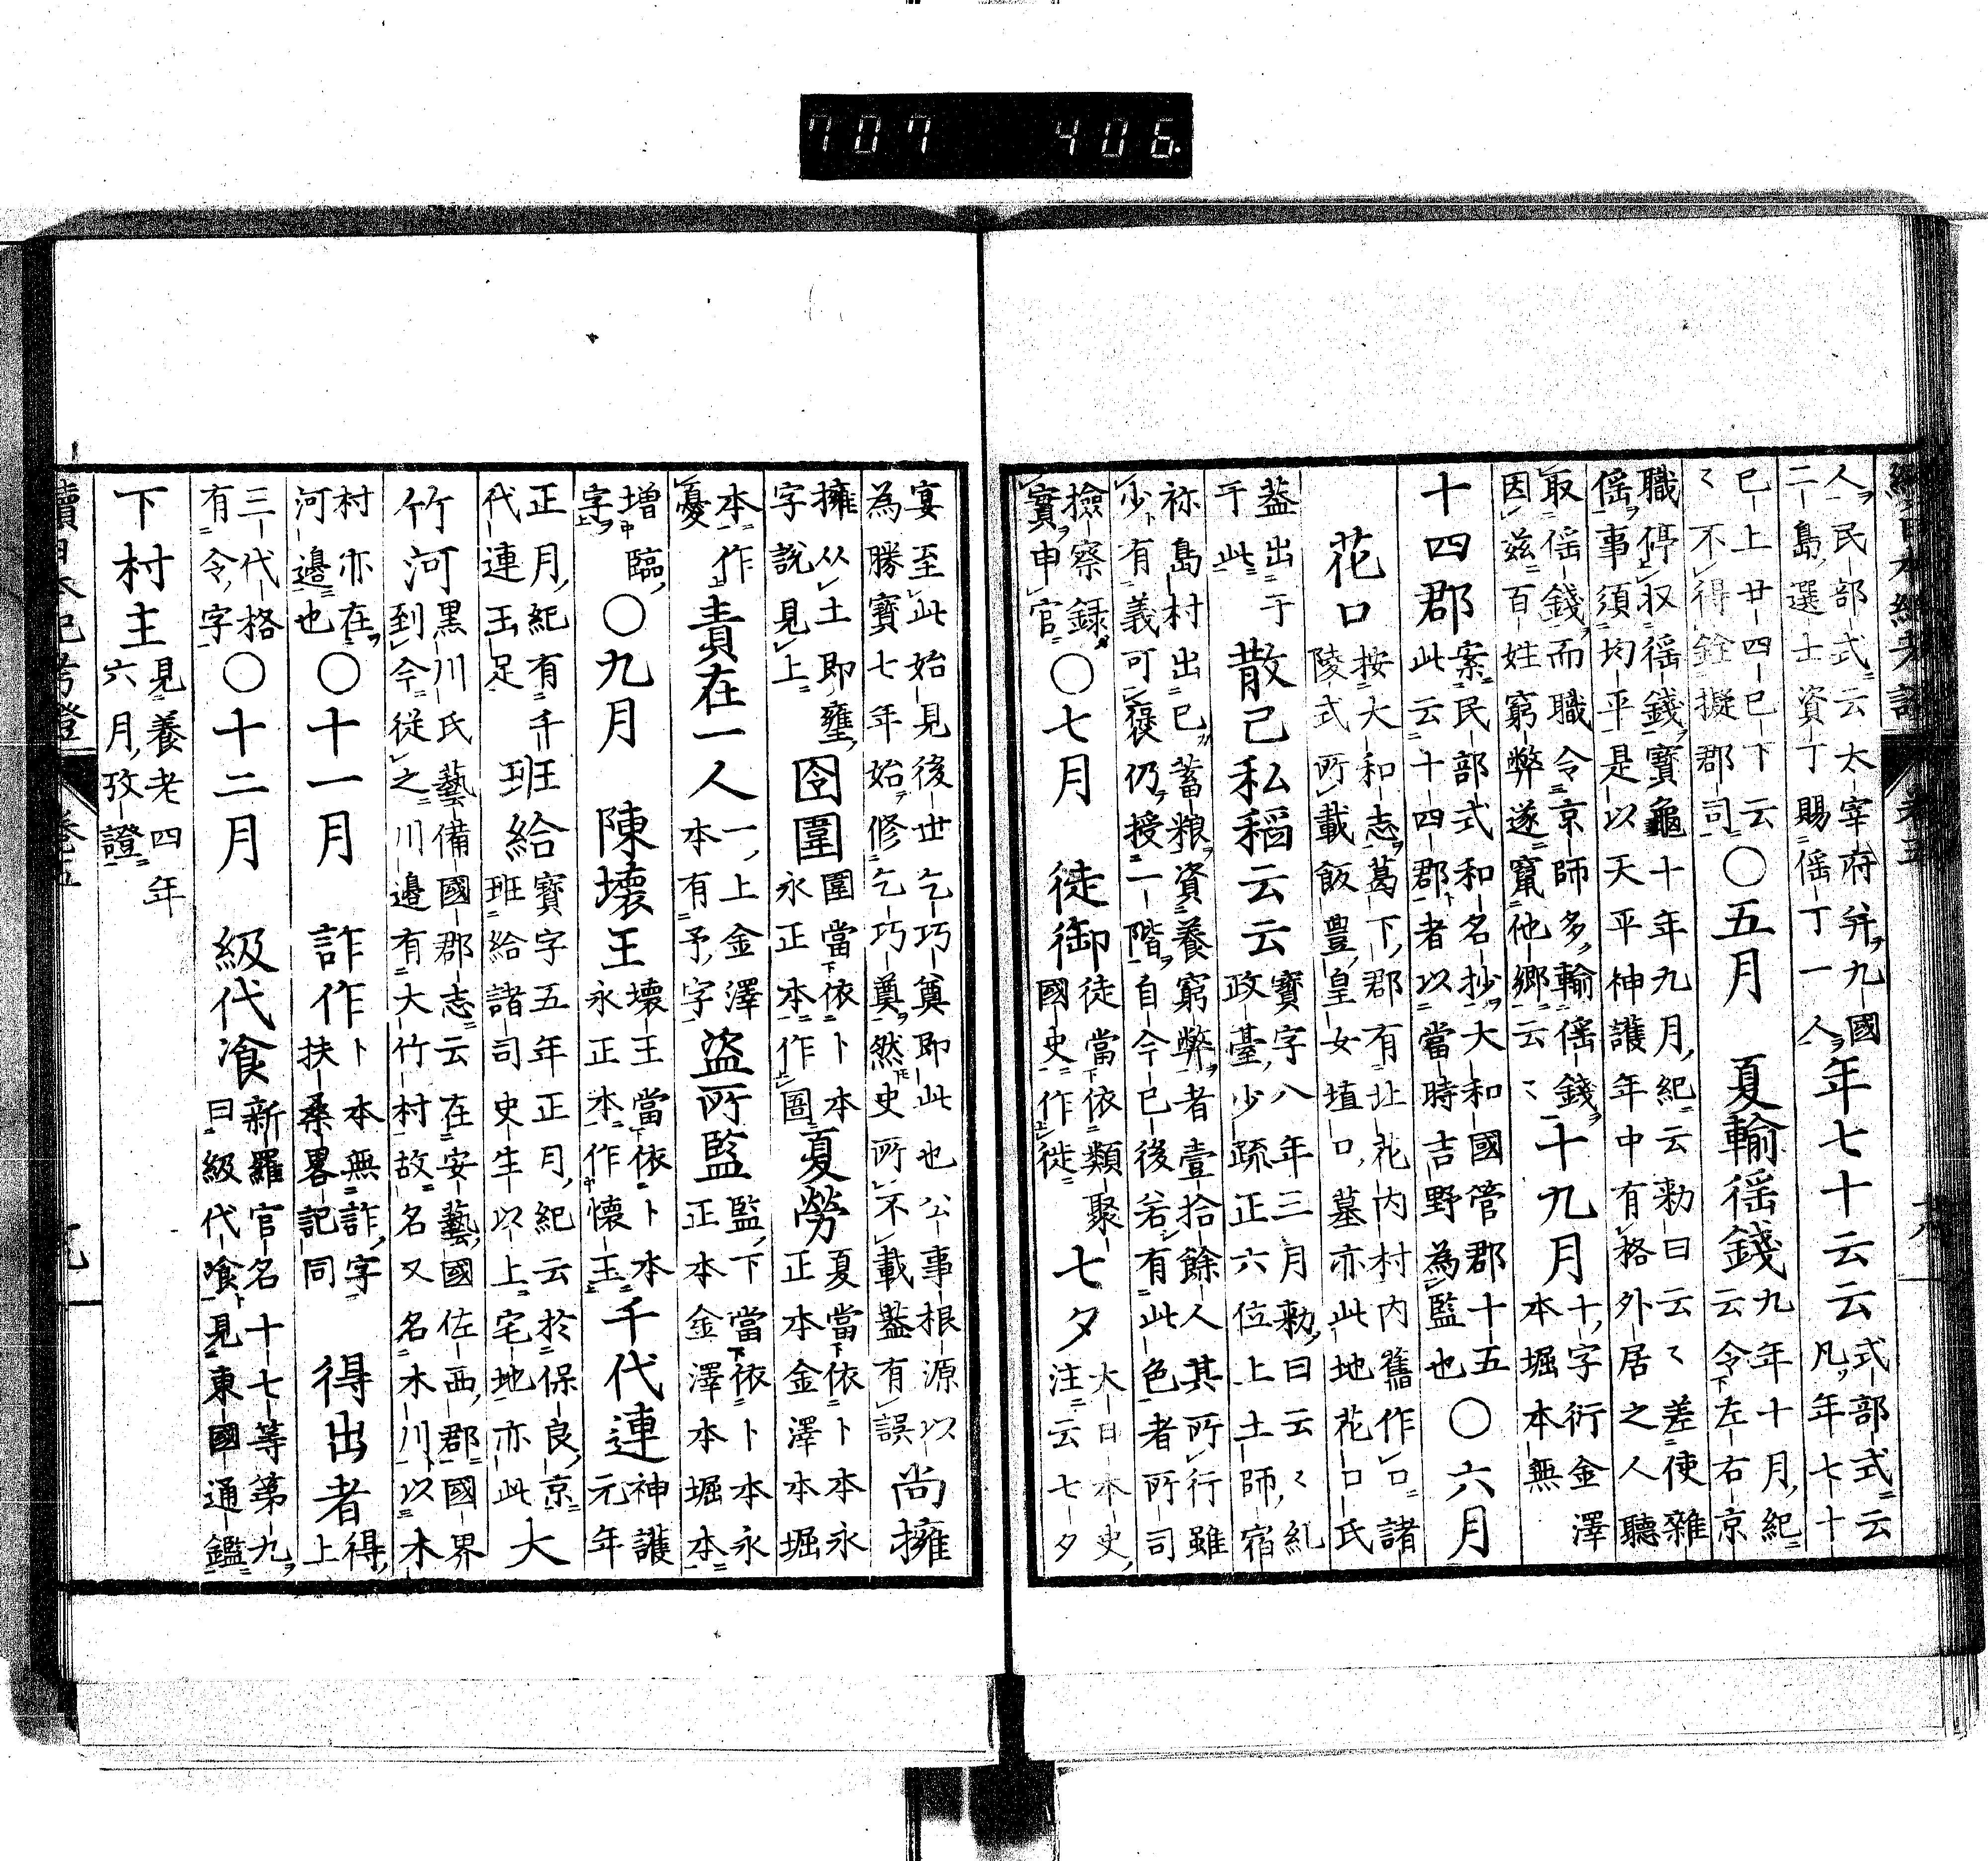 707 406
人民部式云太宰府并九國
二島選士資丁賜徭丁一人
年七十云云
式部式云
凡年七十
巳上廿四巳下云
〻不得銓擬郡司
○五月 夏輸徭錢
九年十月紀
云令左右京
職停収徭錢寶龜十年九月紀云勅曰云〻差使雜
徭事須均平是以天平神護年中有格外居之人聽
取徭錢而職令京師多輸徭錢
因茲百姓窮弊遂竄他鄉云〻
十九月
十字衍金澤
本堀本無
十四郡
案民部式和名抄大和國管郡十五
此云十四郡者以當時吉野為監也
○六月
花口
按大和志葛下郡有北花内村内舊作口諸
陵式所載飯豊皇女埴口墓亦此地花口氏
蓋出于
于此
散己私稻云云
寶字八年三月勅曰云〻糺
政臺少疏正六位上土師宿
祢島村出巳蓄粮資養窮弊者壹拾餘人其所行雖
少有義可褒仍授二階自今巳後若有此色者所司
撿察録
實申官
○七月 徒御
徒當依類聚
國史作徙
七夕
大日本史
注云七夕
宴至此始見後世乞巧奠即此也公事根源以
為勝寳七年始修乞巧奠然史所不載蓋有誤
尚擁
擁从土即壅
字說見上
囹圄
圄當依卜本
永正本作圖
夏勞
夏當依卜本永
正本金澤本堀
本作
憂
責在一人
一上金澤
本有予字
盜所監
監下當依卜本永
正本金澤本堀本
增臨
字
○九月 陳壞王
壞王當依卜本
永正本作懷王
千代連
神護
元年
正月紀有千
代連玉足
班給
寶字五年正月紀云於保良京
班給諸司史生以上宅地亦此
大
竹河
黒川氏藝備國郡志云在安藝國佐西郡國界
到今從之川邉有大竹村故名又名木川以木
村亦在
河邉也
○十一月 詐作
卜本無詐字
扶桑畧記同
得出者
得
上
三代格
有令字
○十二月 級代飡
新羅官名十七等第九
曰級代飡見東國通鑑
下村主
見養老四年
六月攷證